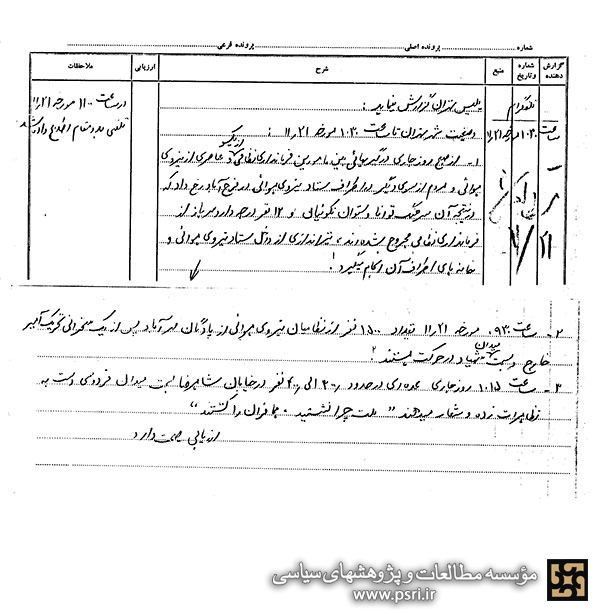 شماره ............ پرونده اصلی ............ پرونده فرعی ............
گزارش دهنده
شماره وتاریخ
منبع
شرح
ارزیابی
ملاحظات
تلگرام
ساعت ۱۰۳۰ مورخه ۱۱/۲۱
پلیس تهران گزارش مینماید :
وضعیت شهر تهران تا ساعت ۱۰۳۰ مورخه ۱۱/۲۱ :
۱- از صبح روز جاری درگیریهائی بین مامورین فرمانداری نظامی از یکسو و عناصری از نیروی
هوائی و مردم از سوی دیگر در اطراف ستاد نیروی هوائی در فرح آباد رخ داد که
در نتیجه آن سرهنگ و ستوان و ۱۲ نفر درجه دار و سرباز از
فرمانداری نظامی مجروح شده اند ، تیراندازی از داخل ستاد نیروی هوائی و
خانه های اطراف آن انجام میگیرد
در ساعت ۱۱۰۰ مورخه ۱۱/۲۱
تلفنی اطلاع داده شد
۲- ساعت ۰۹۳۰ مورخه ۱۱/۲۱ تعداد ۱۵۰۰ نفر از نظامیان نیروی هوائی از پادگان مهرآباد پس از یک سخنرانی تحریک آمیز
خارج و بسمت میدان شهیاد در حرکت هستند
۳- ساعت ۱۰۱۵ روز جاری عده ای در حدود ۲۰۰ الی ۴۰۰ نفر در خیابان شاهرضا بسمت میدان فردوسی دست به
تظاهرات زده و شعار میدهند " ملت چرا نشستید ، همافران را کشتند "
ارزیابی صحت دارد
مؤسسه مطالعات و پژوهشهای سیاسی
www.psri.ir